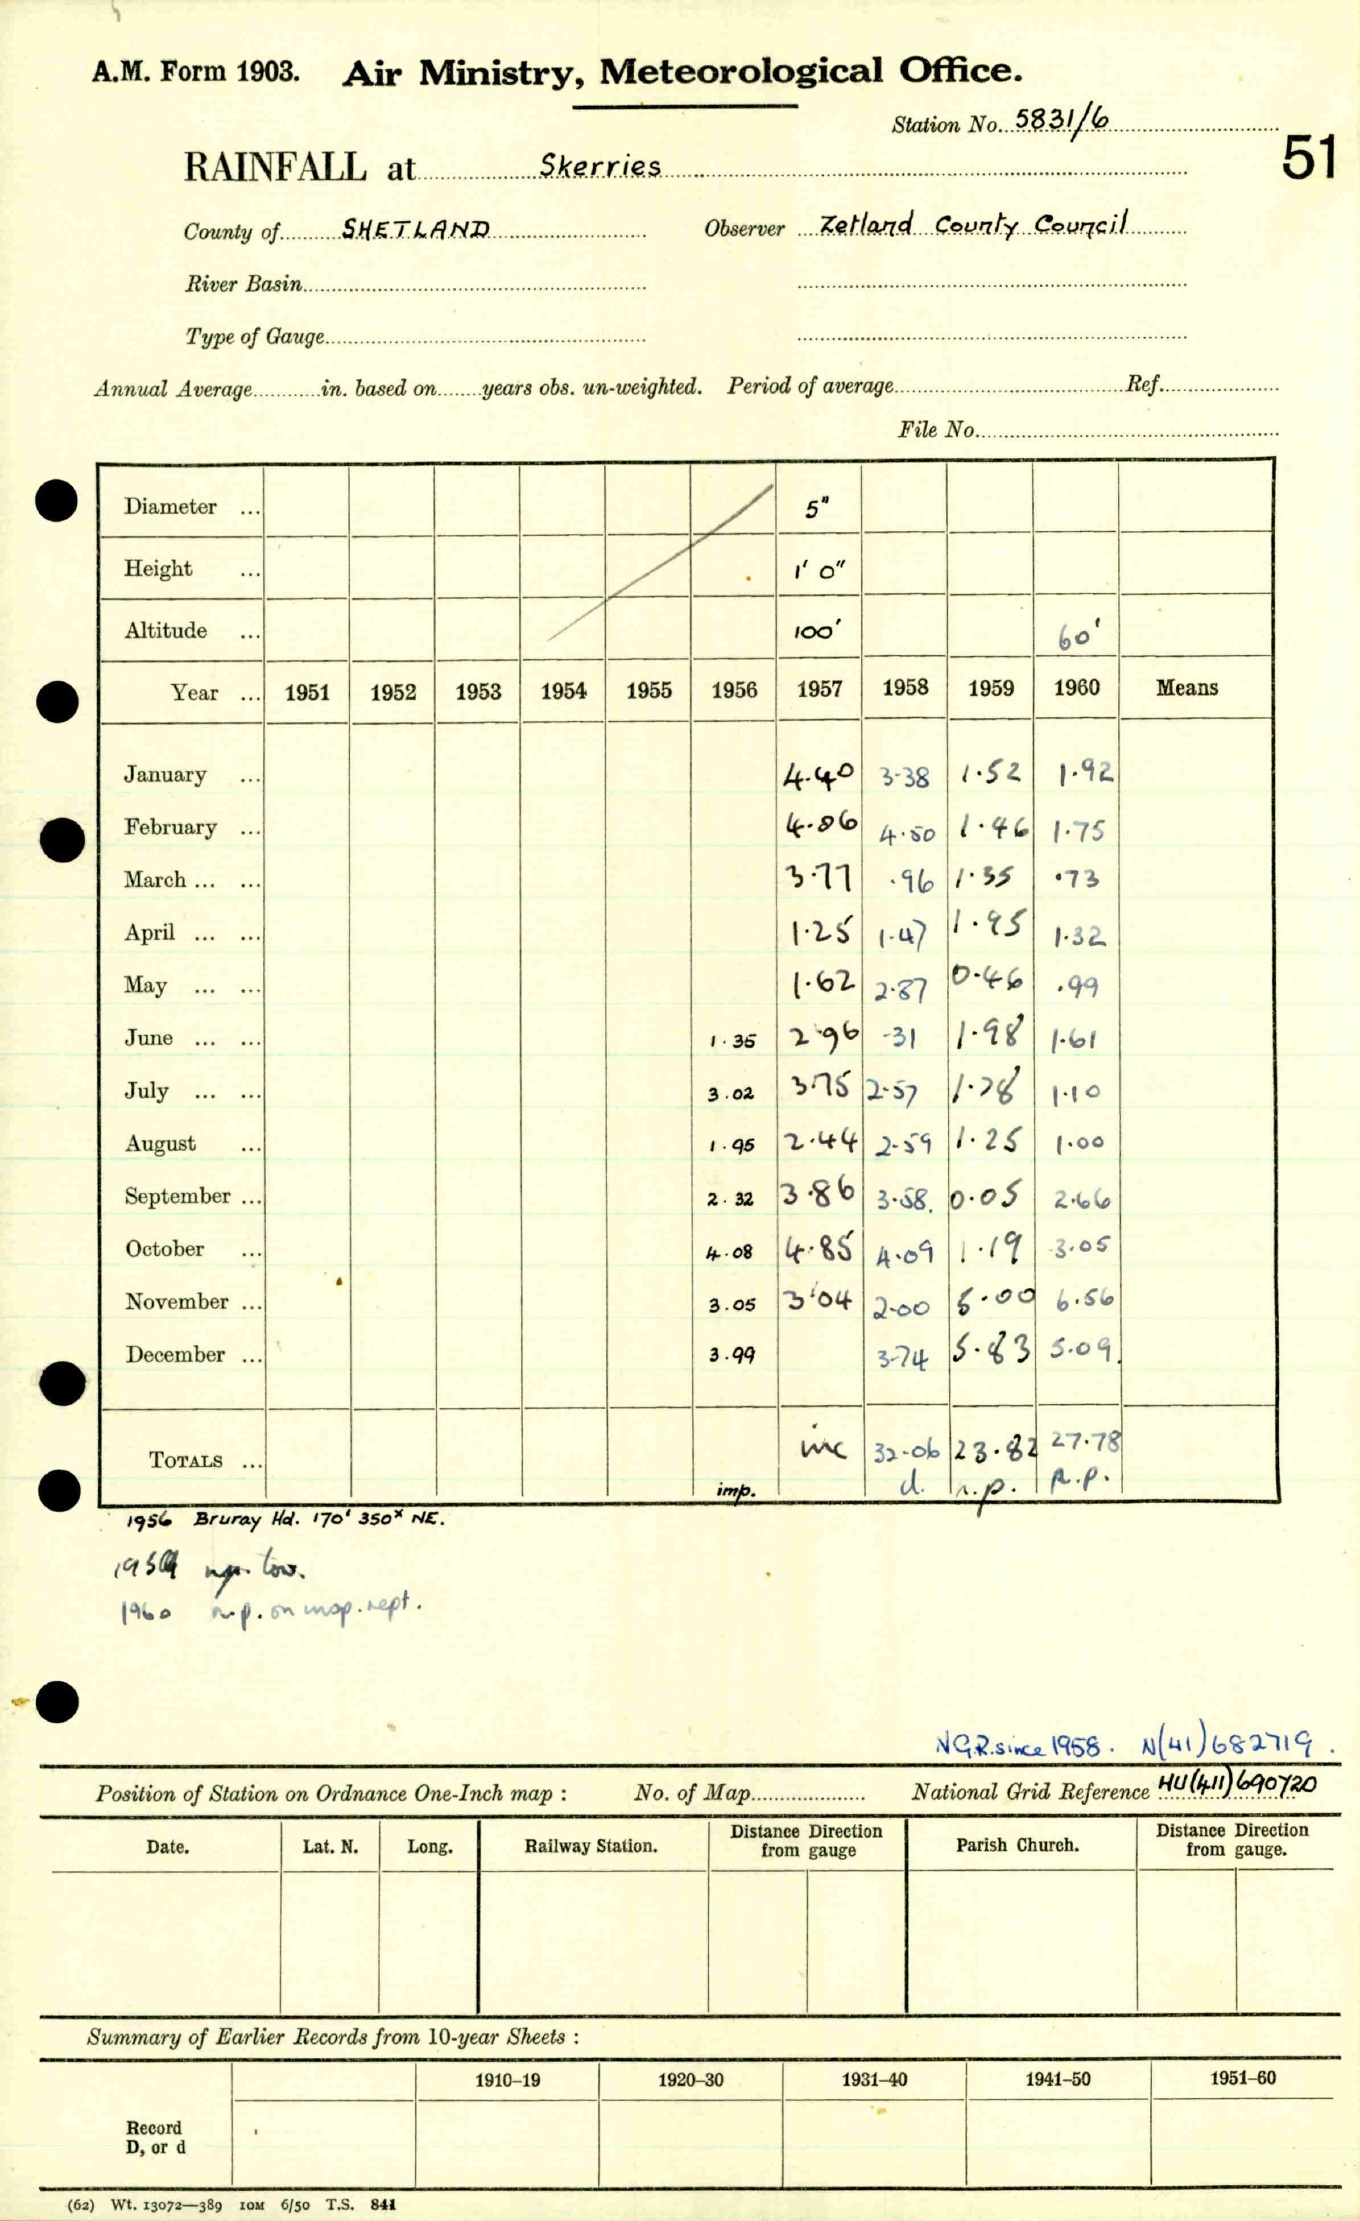 A.M. Form 1903. Air Ministry, Meteorological Office.
Station No. 5831/6
51
RAINFALL at Skerries
County of SHETLAND Observer Zetland County Council
River Basin
Type of Gauge
Annual Average in. based on years obs. un-weighted. Period of average Ref.
File No.
Diameter ... 5"
Height ... 1' 0"
Altitude ... 100' 60'
Year ... 1951 1952 1953 1954 1955 1956 1957 1958 1959 1960 Means
January ... 4.40 3.38 1.52 1.92
February ... 4.06 4.50 1.46 1.75
March ... ... 3.77 .96 1.35 .73
April ... ... 1.25 1.47 1.95 1.32
May ... ... 1.62 2.87 0.46 .99
June ... ... 1.35 2.96 .31 1.98 1.61
July ... ... 3.02 3.75 2.57 1.78 1.10
August ... 1.95 2.44 2.59 1.25 1.00
September ... 2.32 3.86 3.58. 0.05 2.66
October ... 4.08 4.85 4.09 1.19 3.05
November ... 3.05 3.04 2.00 5.00 6.56
December ... 3.99 3.74 5.83 5.09.
TOTALS ... inc 32.06 23.82 27.78
imp. d. n.p. n.p.
1956 Bruray Hd. 170' 350ˣ NE.
1959 n.p. low.
1960 n.p. on insp. rept.
N.G.R. since 1958. N(41)682719.
Position of Station on Ordnance One-Inch map : No. of Map National Grid Reference HU(411)690720
Date. Lat. N. Long. Railway Station. Distance from Direction gauge Parish Church. Distance from Direction gauge.
Summary of Earlier Records from 10-year Sheets :
1910–19 1920–30 1931–40 1941–50 1951–60
Record
D, or d
(62) Wt. 13072—389 10M 6/50 T.S. 841